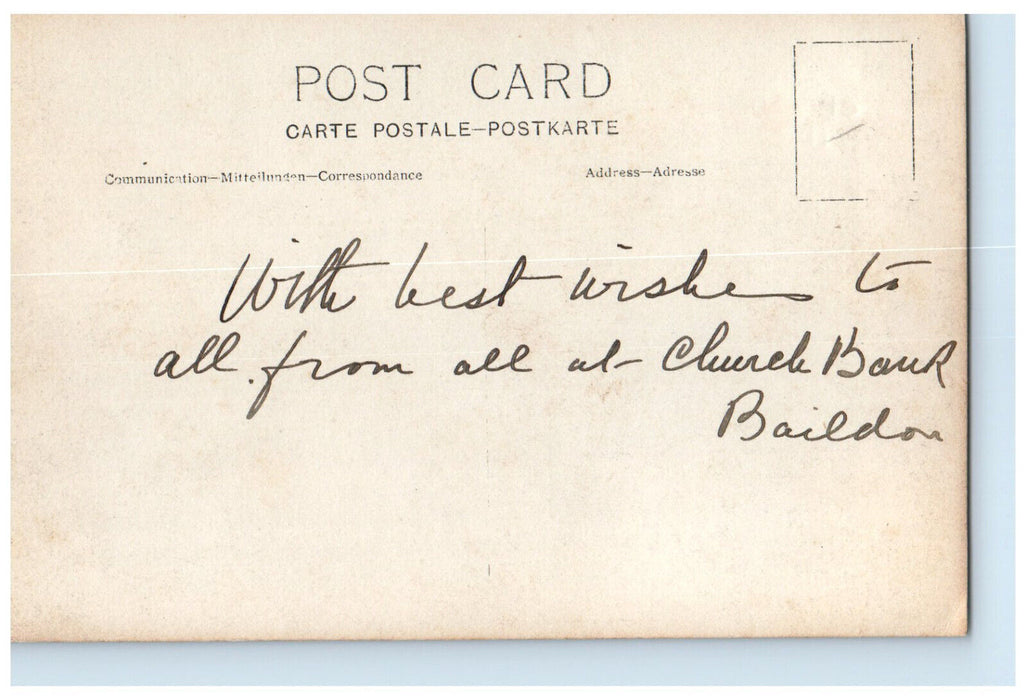 POST CARD
CARTE POSTALE—POSTKARTE
Communication—Mitteilungen—Correspondance
Address—Adresse
With best wishes to
all from all at Church Bank
Baildon